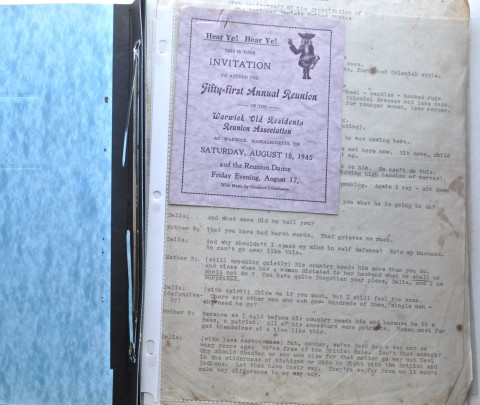 50th Anniversary of the Organization of
Hear Ye! Hear Ye!
THIS IS YOUR
INVITATION
TO ATTEND THE
Fifty-first Annual Reunion
OF THE
Warwick Old Residents
Reunion Association
AT WARWICK, MASSACHUSETTS, ON
SATURDAY, AUGUST 18, 1945
and the Reunion Dance
Friday Evening, August 17,
Colonial style.
candles - hooked rugs
Colonial dresses and lace caps.
for younger woman, lace collar.
he was coming here.
not here now. Sit down, child
to him. He can't do this.
high tension of nerves).
speaking. Again I say - sit down
you what he is going to do?
Delia: And what more did he tell you?
Mother B: That you have had harsh words. That grieves me much.
Delia: And why shouldn't I speak my mind in self defense? He's my husband.
He can't go away like this.
Mother B: (still speaking quietly) His country needs him more than you do.
And since when has a woman dictated to her husband what he shall or
shall not do? You have quite forgotten your place, Delia, and I am
surprised.
Delia: (with spirit) Chide me if you must, but I still feel the same.
(defensively) There are other men who can go. Hundreds of them, single men -
why need he go?
Mother B: Because as I said before his country needs him and because he is a
man, a patriot. All of his ancestors were patriots. Women must for
get themselves at a time like this.
Delia: (with less nervousness) But, mother, we've just had a war not so
many years ago. We're free from the British Rule. Isn't that enough?
Why should Obadiah or any one else for that matter go way out West
in the wilderness of Michigan or Ohio to fight with the British and
Indians. Let them have their way. They're so far from us it won't
make any difference to us any way.